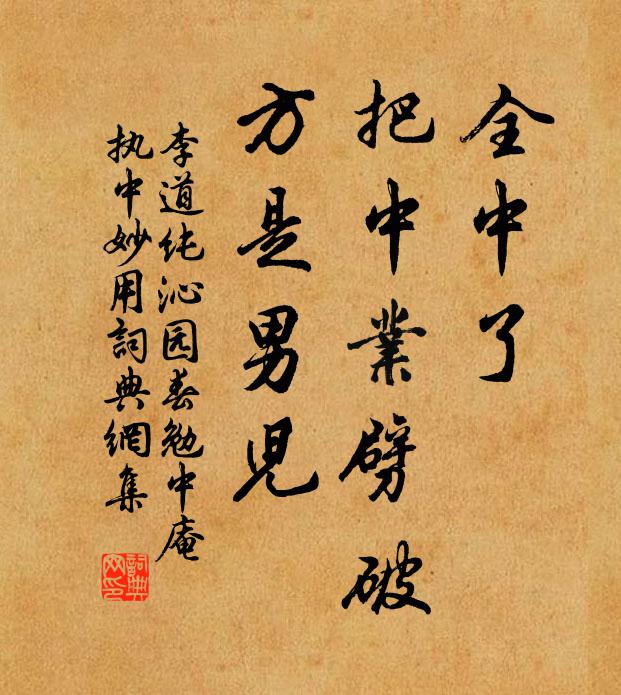 全中了
把中業劈破
方是男児
李道纯沁园春勉中庵
执中妙用詞典網集
詞典网印